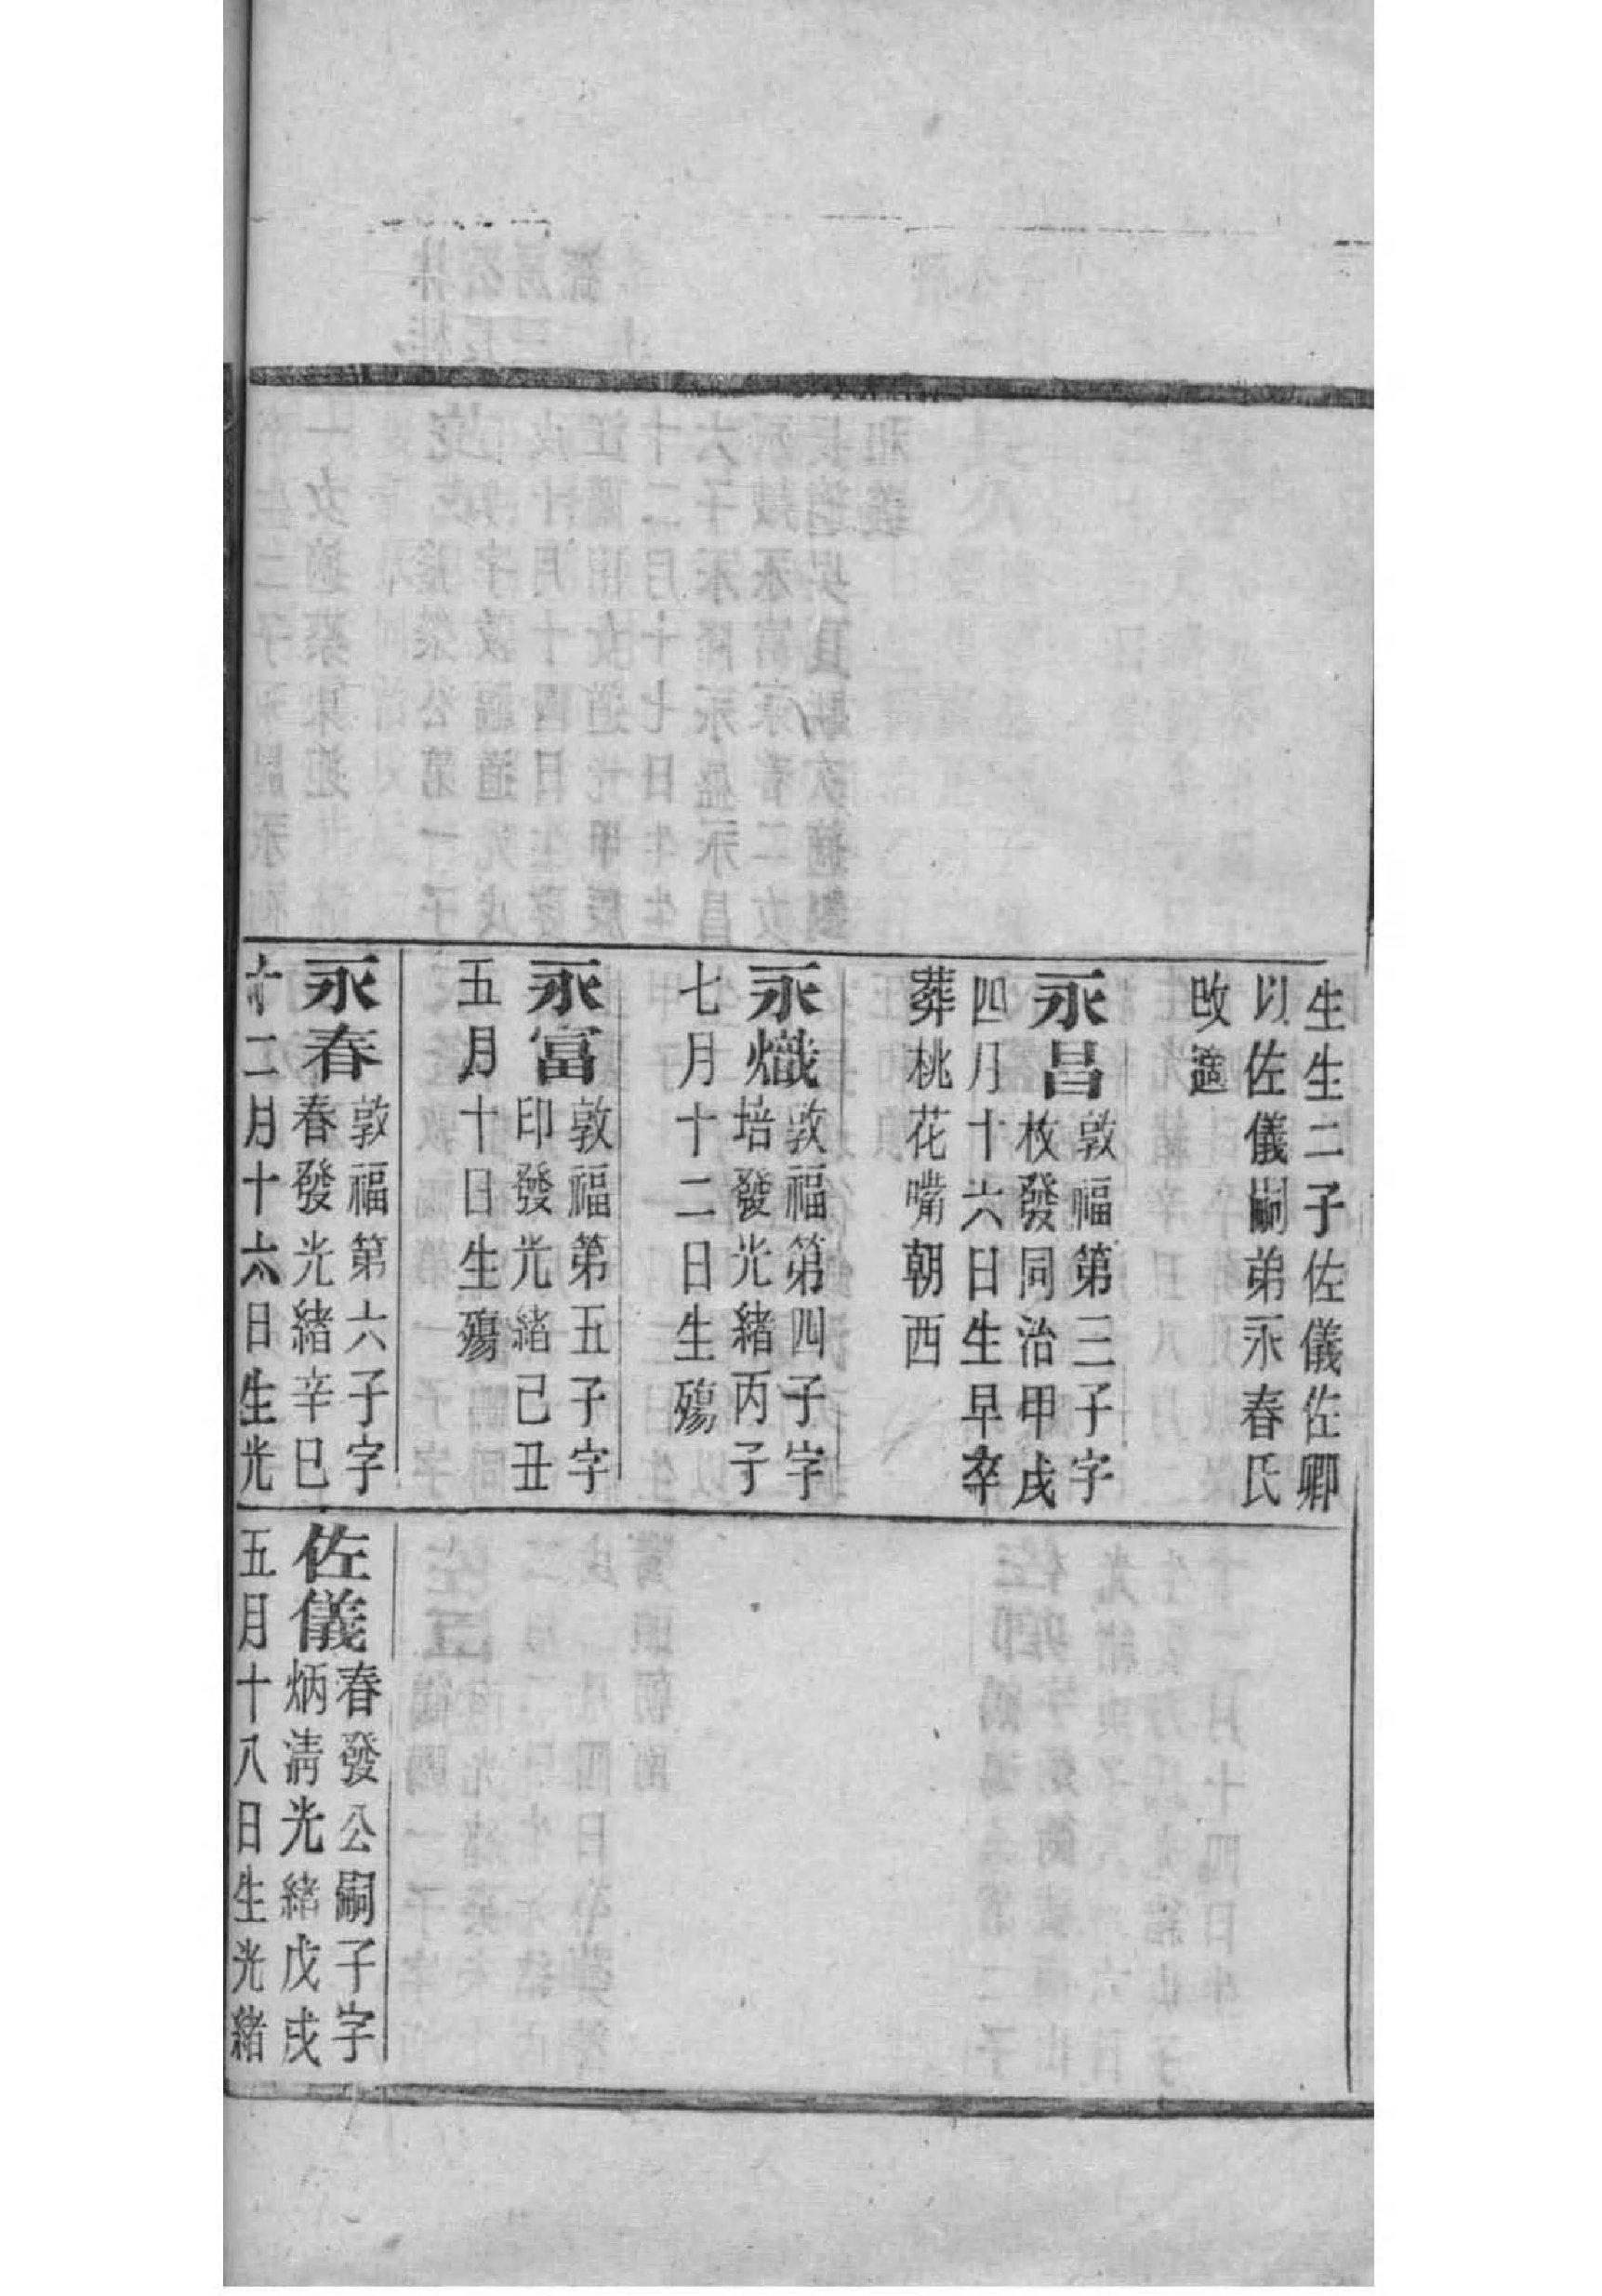 生生二子佐儀佐卿
以佐儀嗣弟永春氏
改適
永昌敦福第三子字
枚發同治甲戌
四月十六日生早卒
葬桃花嘴朝西
永熾敦福第四子字
培發光緒丙子
七月十二日生殤
永富敦福第五子字
印發光緒己丑
五月十日生殤
永春敦福第六子字
春發光緒辛巳
十二月十六日生光
佐儀春發公嗣子字
炳清光緒戊戌
五月十八日生光緒